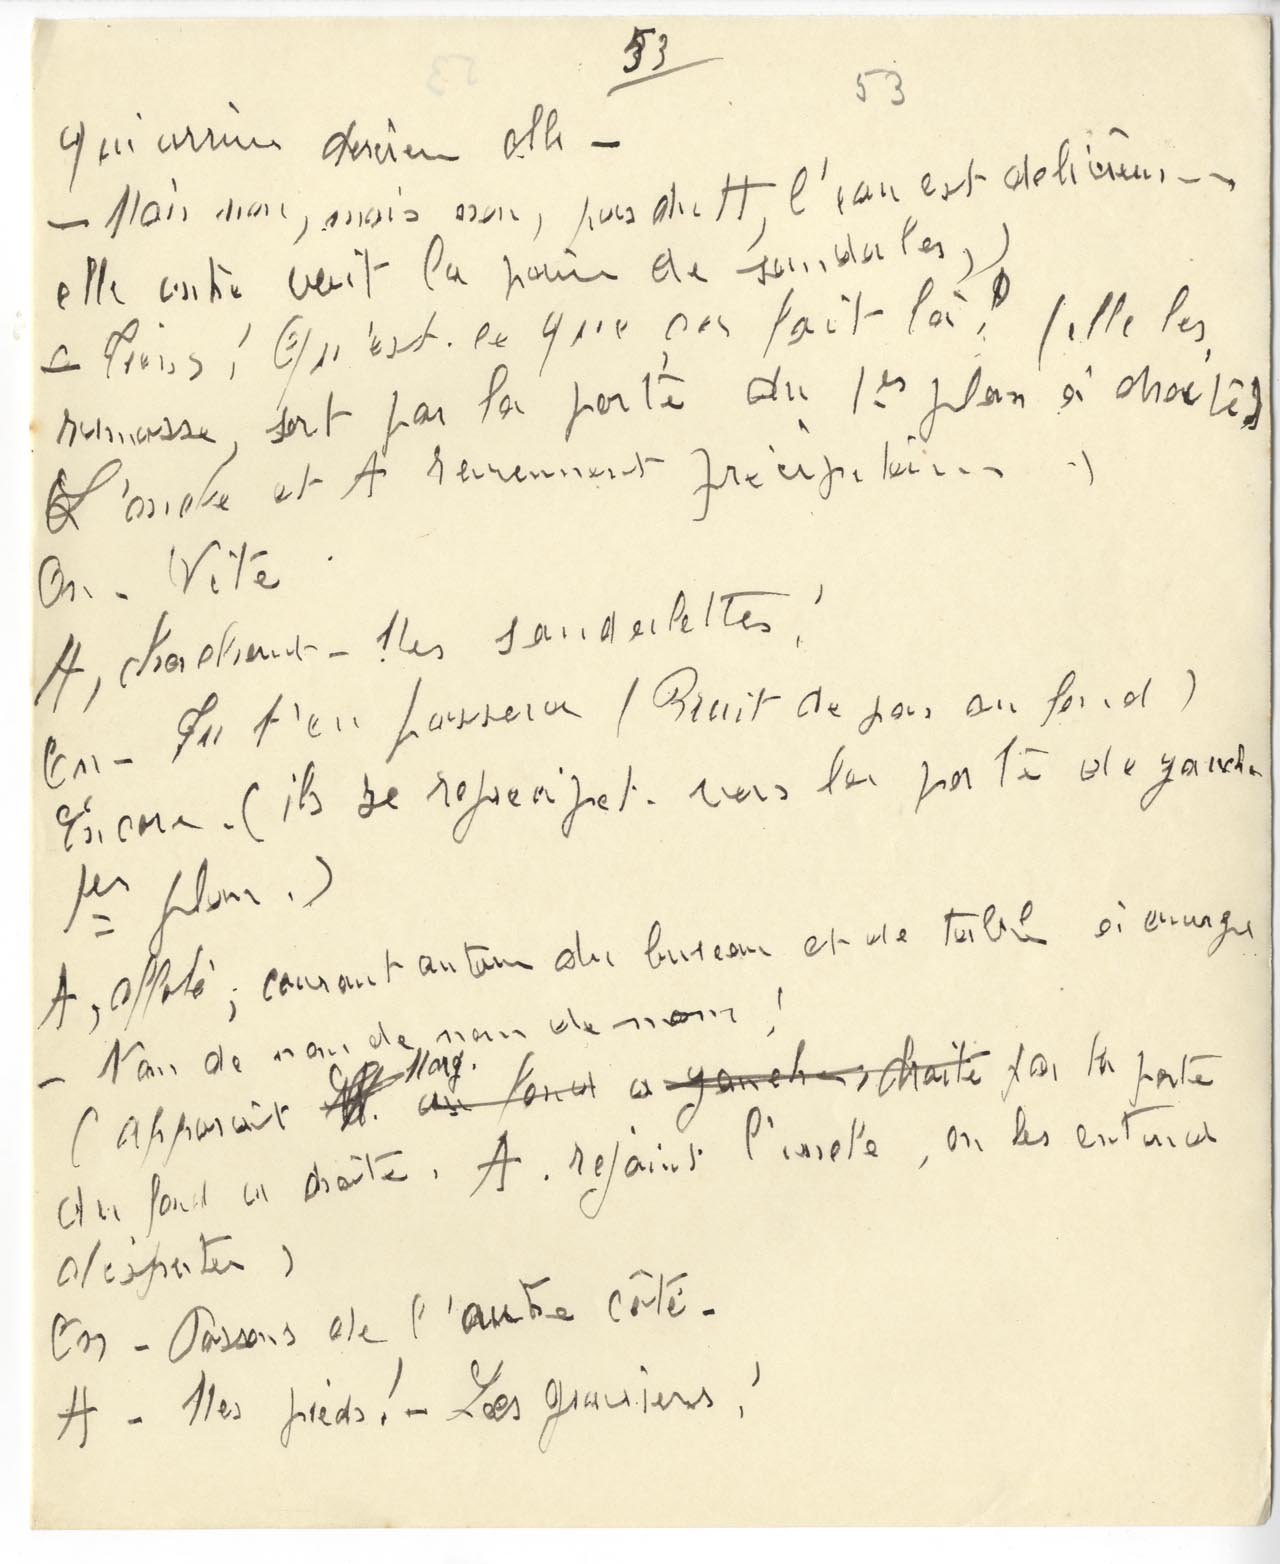 53
53
qui arrive derrière elle -
- Mais non, mais non, pas du tt, l'eau est délicieuse --
elle entre voit la paire de sandales,)
- Tiens! Qu'est-ce que ça fait là? (elle les
ramasse, sort par la porte du 1er plan à droite)
L'oncle et A reviennent précipitam. -)
On - Vite
A, chuchotant - Mes sandalettes!
On - Tu t'en passeras (Bruit de pas au fond)
Encore. (ils se reprécipit. vers la porte de gauche
1er plan.)
A, affolé, courant autour du bureau et de table à manger
- Nom de nom de nom de nom!
(apparaît Marg. au fond à gauche, droite par la porte
du fond à droite. A. rejoint l'oncle, on les entend
disputer)
On - Passons de l'autre côté -
A - Mes pieds! - Les graviers!